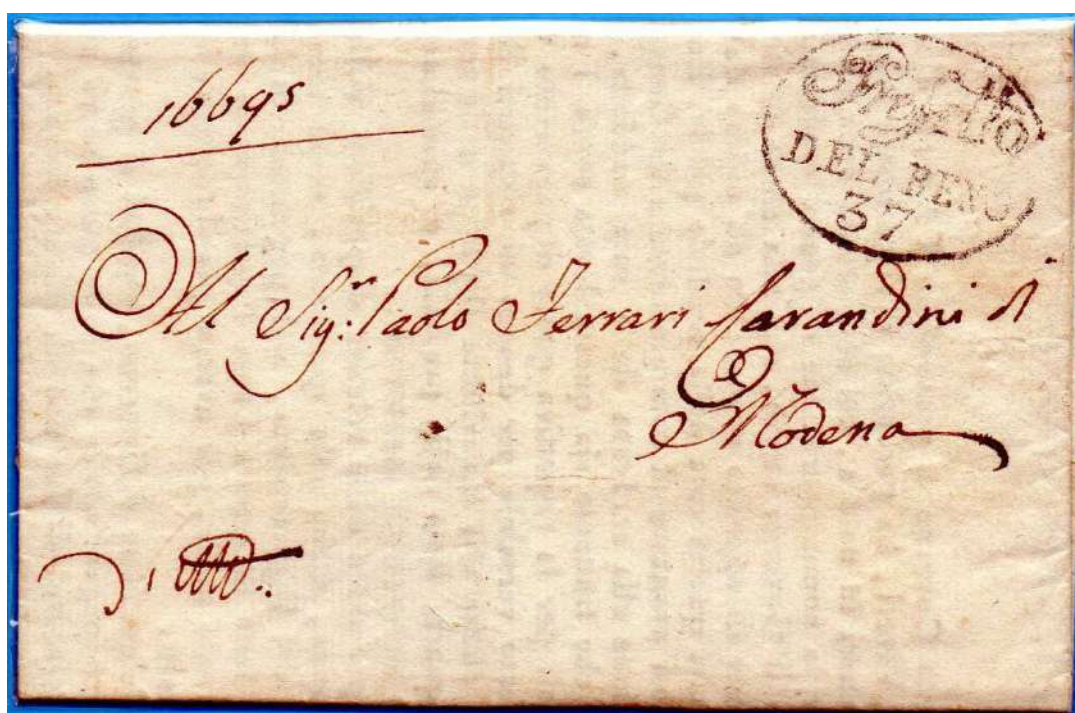 16695
DEL RENO
37
Al Sig:r Paolo Ferrari Carandini di
Modena